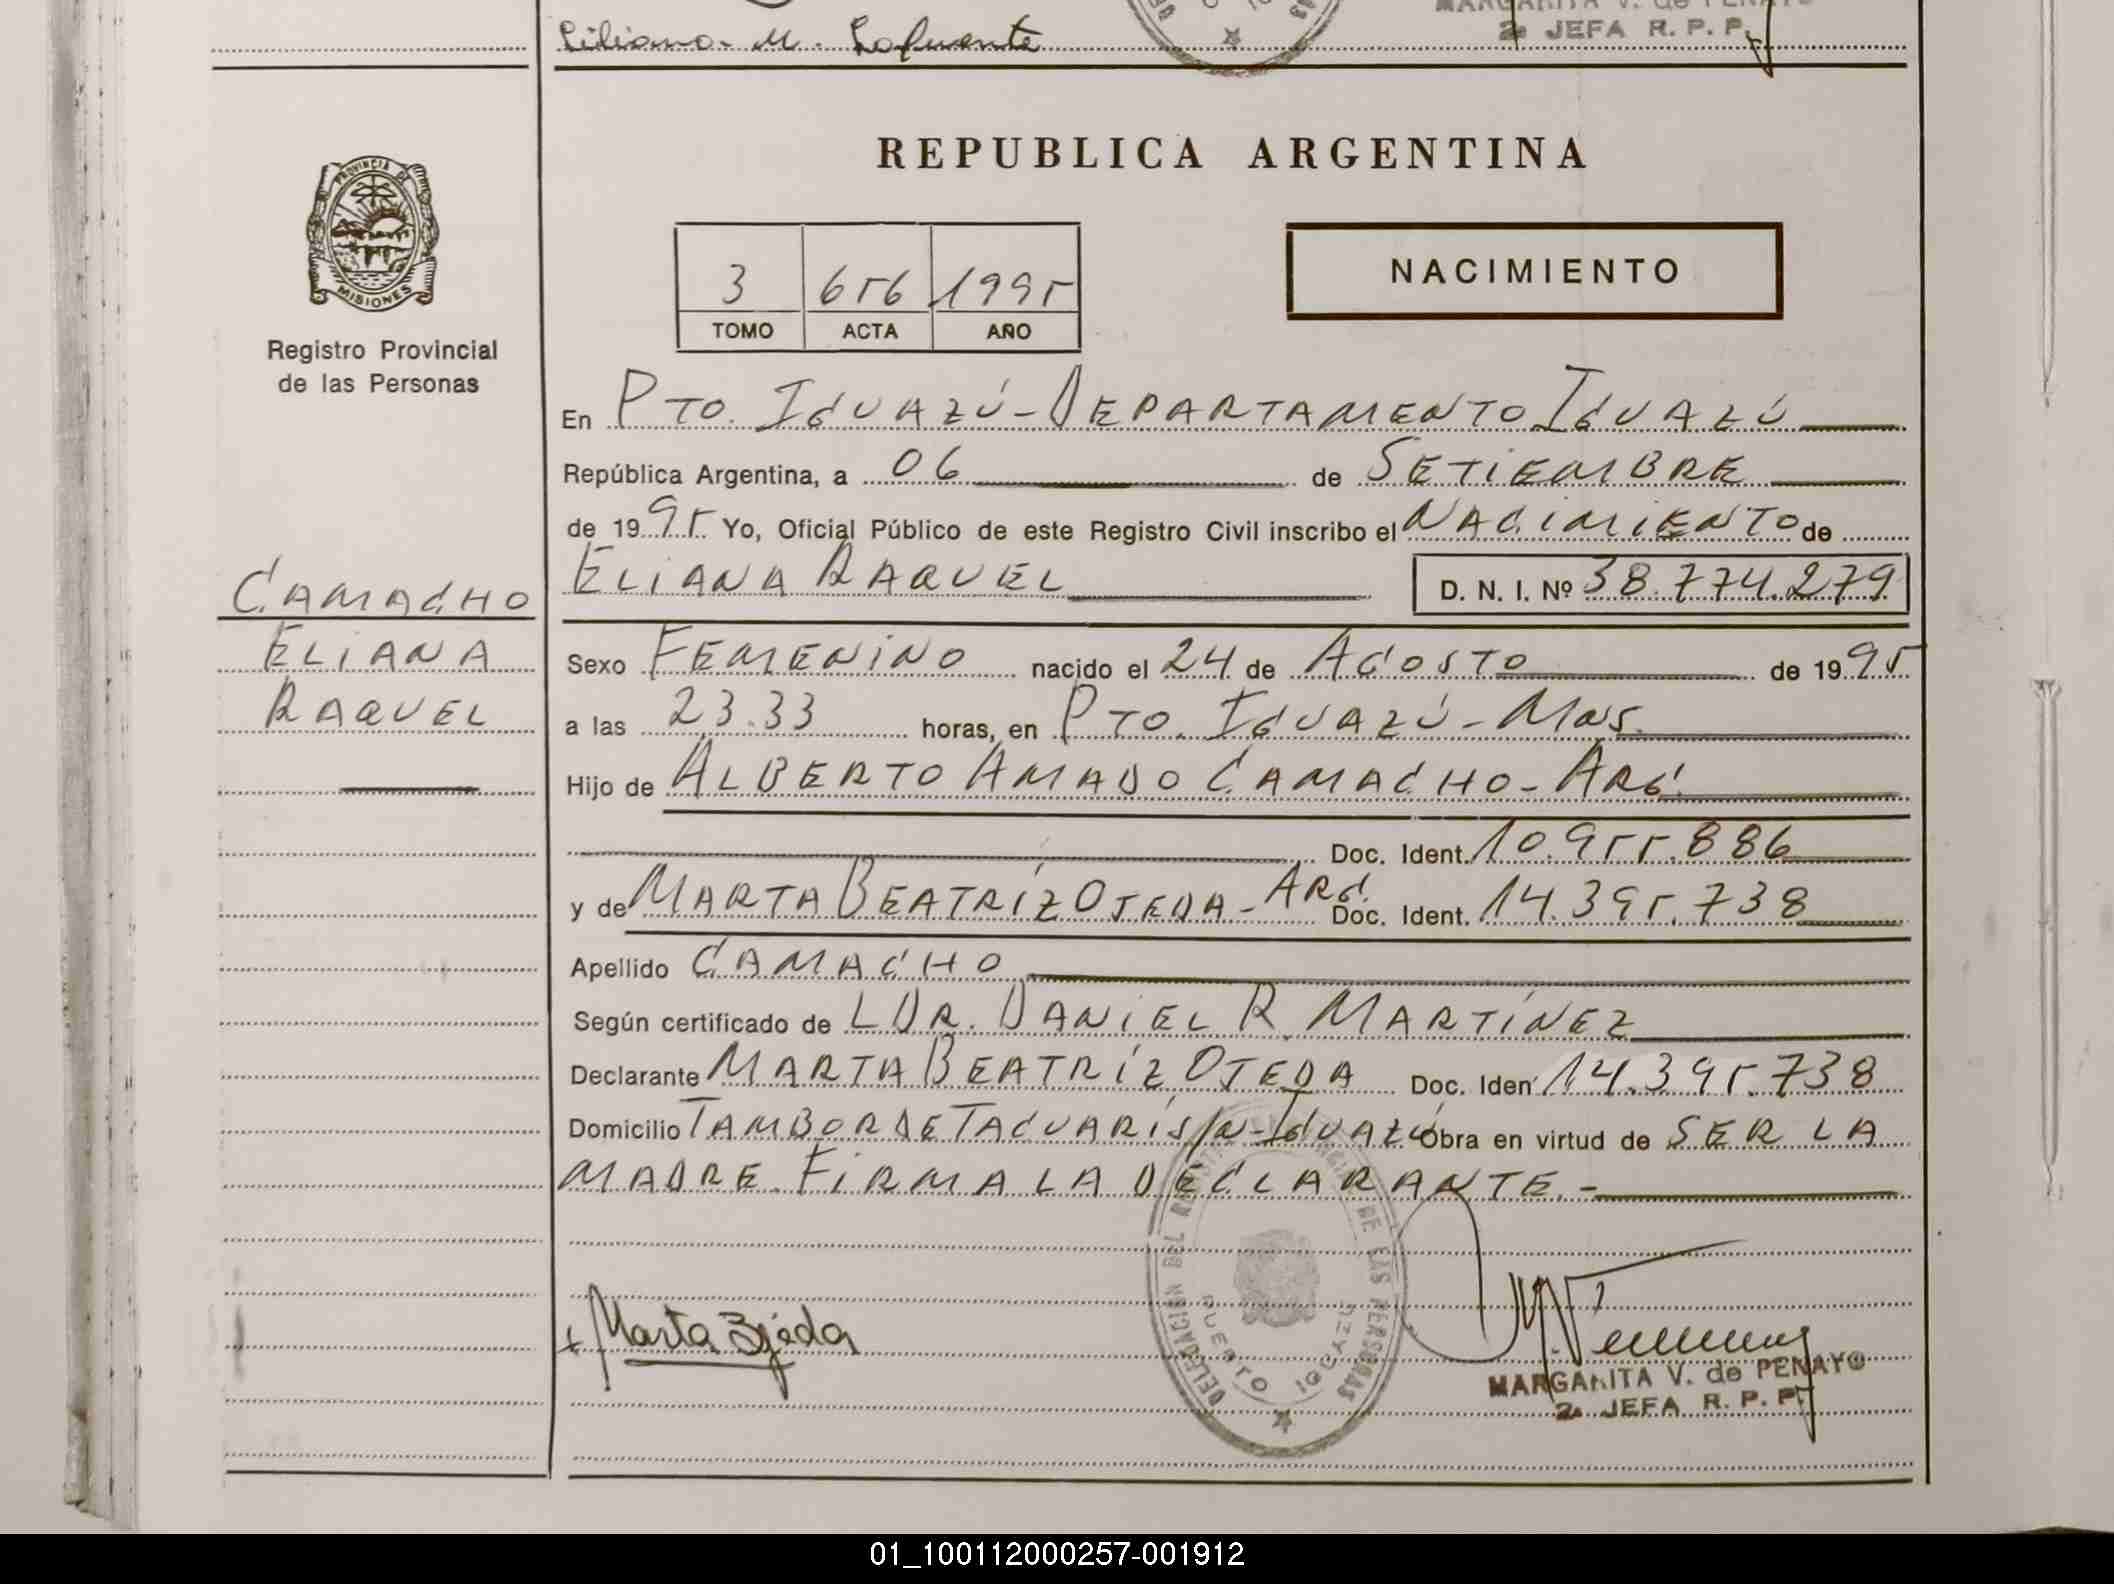 Liliana M. Lafuente
MARGARITA V. de PENAYO
2a JEFA R. P. P.
PROVINCIA DE
MISIONES
Registro Provincial
de las Personas
REPUBLICA ARGENTINA
3 656 1995
TOMO ACTA AÑO
NACIMIENTO
En PTO. IGUAZÚ - DEPARTAMENTO IGUAZÚ
República Argentina, a 06 de SETIEMBRE
de 1995 Yo, Oficial Público de este Registro Civil inscribo el NACIMIENTO de
ELIANA RAQUEL D. N. I. Nº 38.774.279
CAMACHO
ELIANA
RAQUEL
Sexo FEMENINO nacido el 24 de AGOSTO de 1995
a las 23.33 horas, en PTO. IGUAZÚ - Mns.
Hijo de ALBERTO AMADO CAMACHO - ARG.
Doc. Ident. 10.955.886
y de MARTA BEATRÍZ OJEDA - ARG. Doc. Ident. 14.395.738
Apellido CAMACHO
Según certificado de L DR. DANIEL R. MARTÍNEZ
Declarante MARTA BEATRÍZ OJEDA Doc. Iden 14.395.738
Domicilio TAMBOR DE TACUARÍ S/N - IGUAZÚ Obra en virtud de SER LA
MADRE. FIRMA LA DECLARANTE. -
Marta Ojeda
DELEGACIÓN DEL REGISTRO PROVINCIAL DE LAS PERSONAS
PUERTO IGUAZU
MARGARITA V. de PENAYO
2a JEFA R. P. P.
01_100112000257-001912